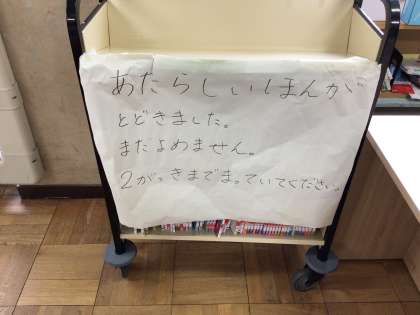 あたらしいほんが
とどきました。
まだよめません。
2がっきまでまっていてください。